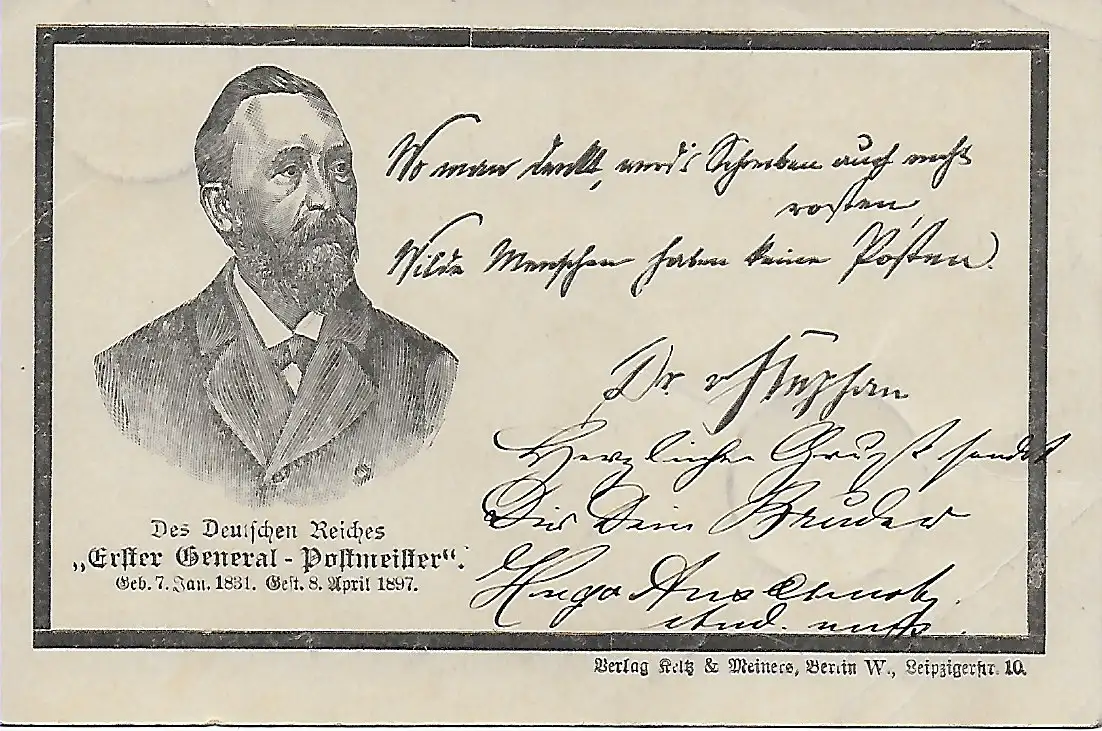 Wo man denkt, wird's Schreiben auch nicht
rosten,
Wilde Menschen haben keine Posten.
Dr. v Stephan
Herzlichen Gruß sendet
Dir Dein Bruder
Hugo
Des Deutschen Reiches
„Erster General-Postmeister“.
Geb. 7. Jan. 1831. Gest. 8. April 1897.
Verlag Keltz & Meiners, Berlin W., Leipzigerstr. 10.